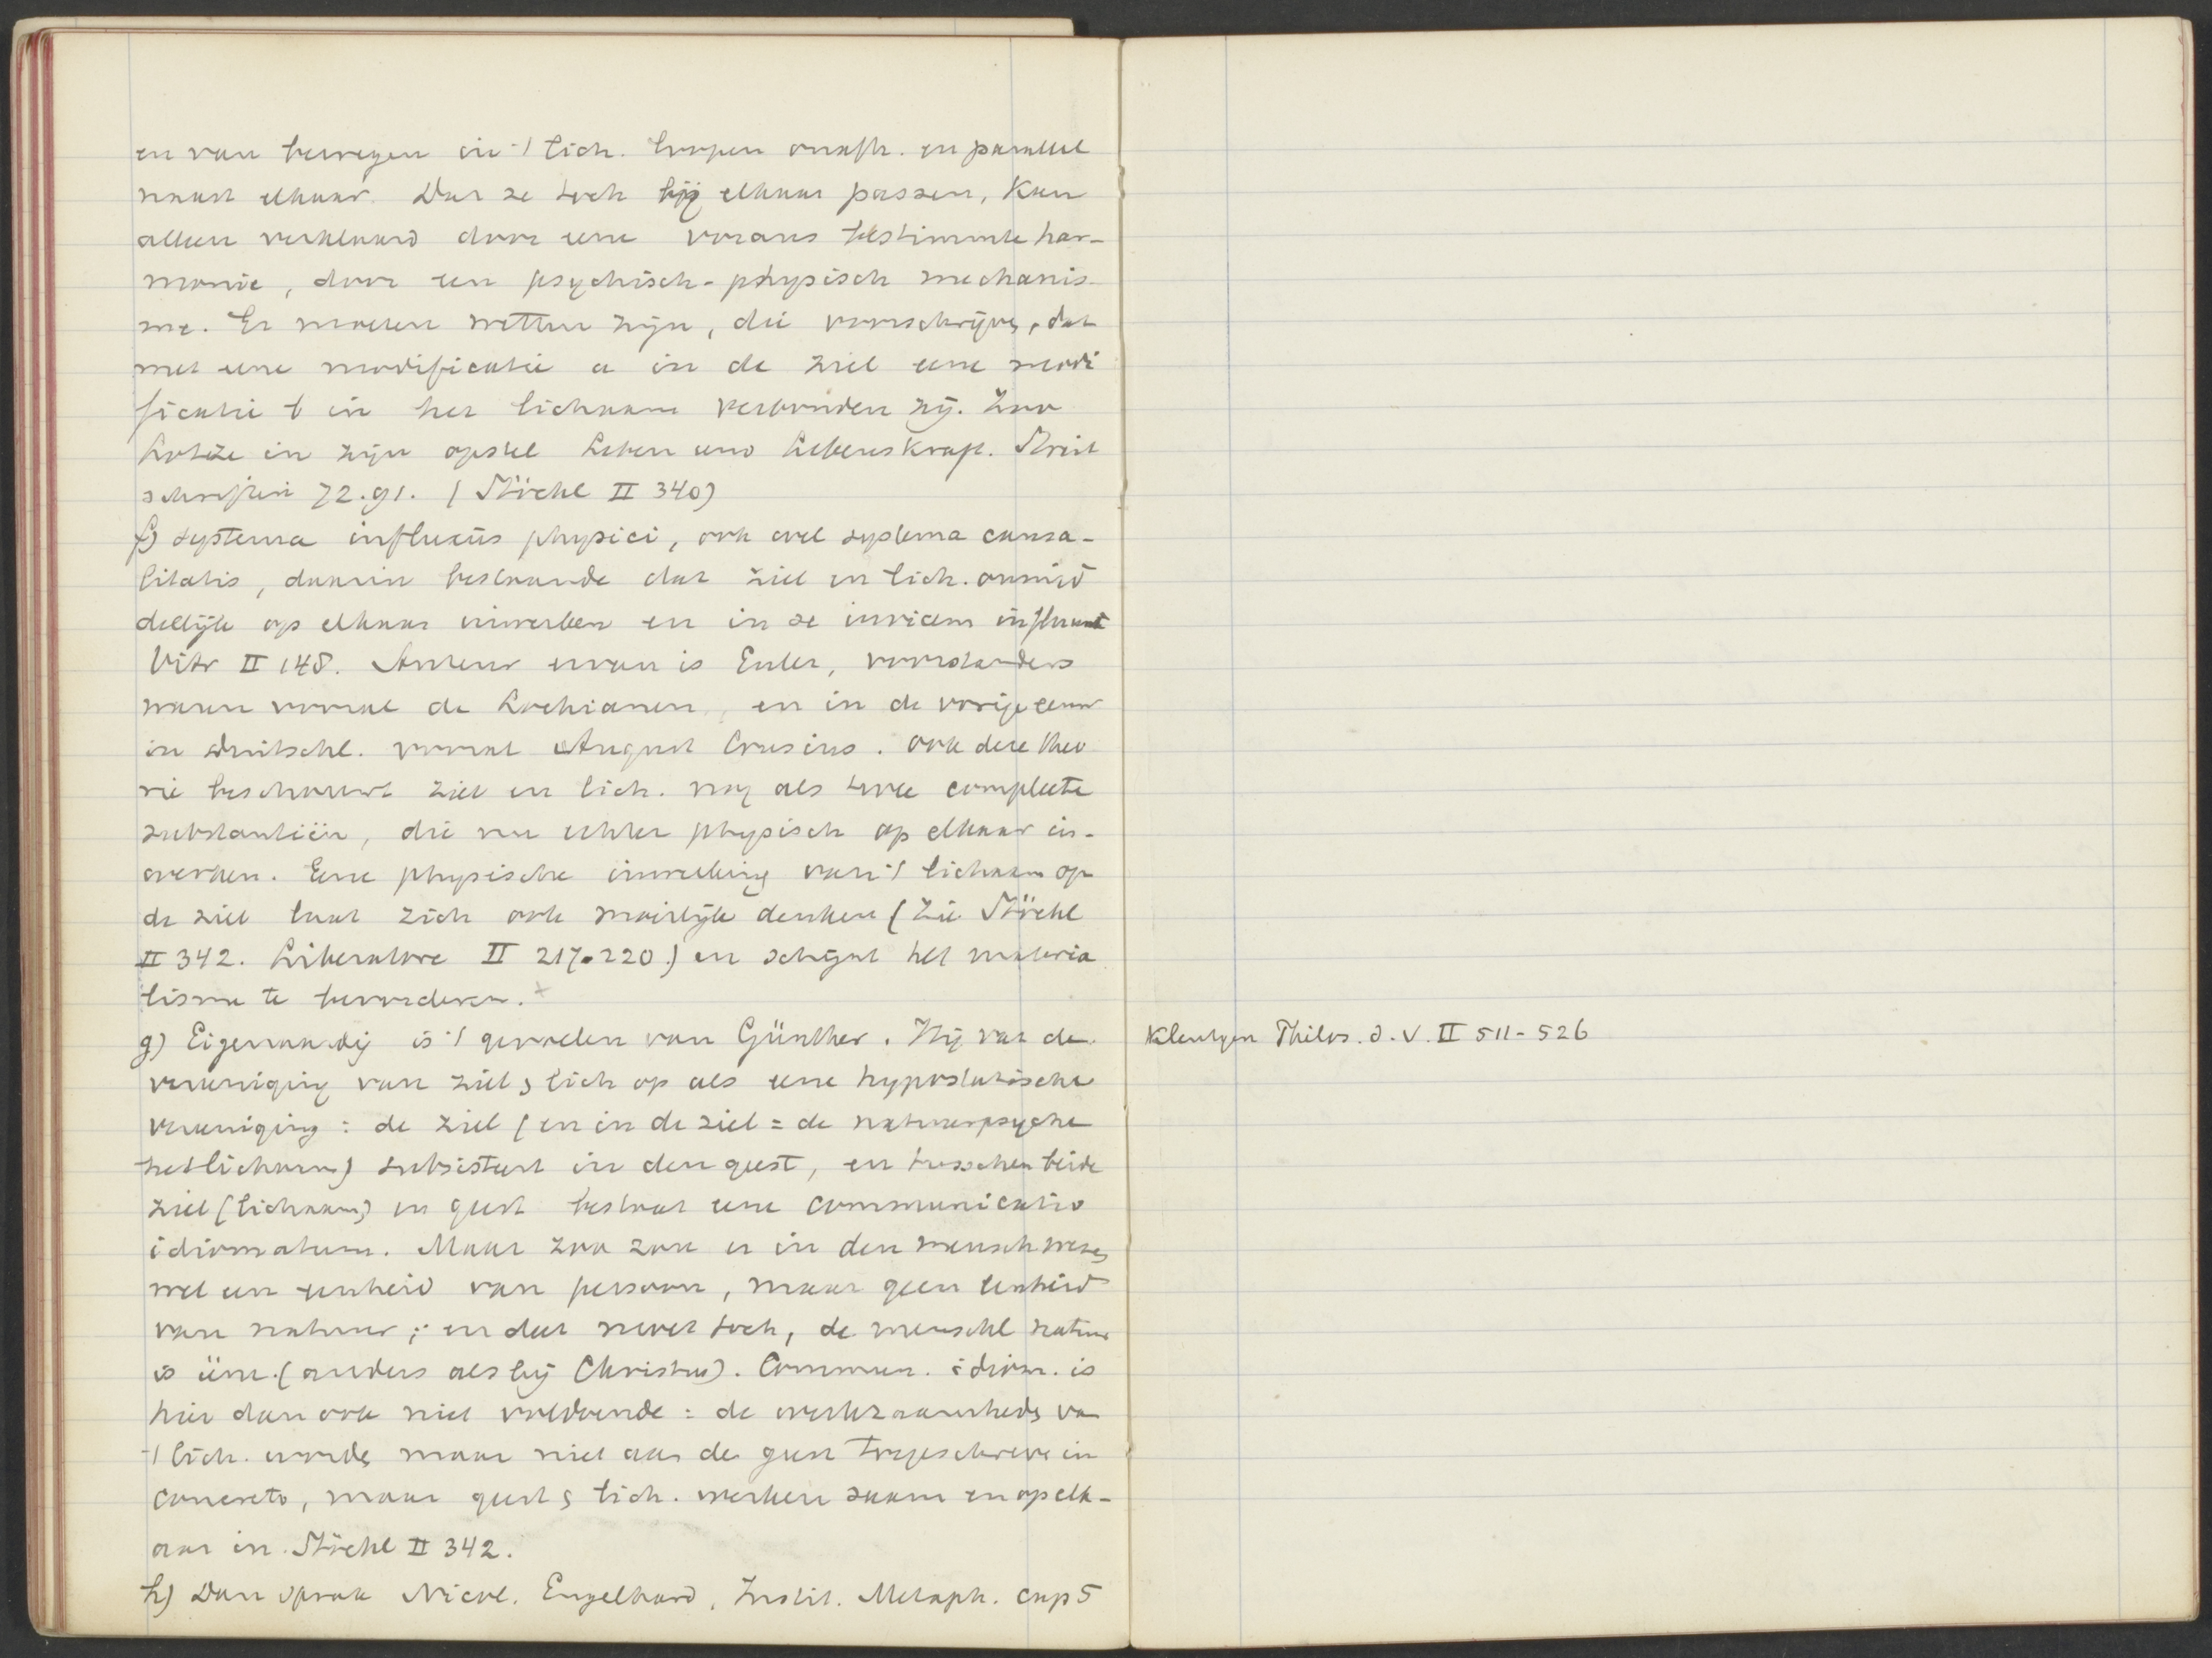 en van bewegen in 't lich. loopen onafh. en parallel
naast elkaar. Dat ze toch bij elkaar passen, kan
alleen verklaard door eene voraus bestimmte har-
monie, door een psychisch-physisch mechanis-
me. Er moeten wetten zijn, die voorschrijven, dat
met eene modificatie a in de ziel eene modi
ficatie b in het lichaam verbonden zij. Zoo
Lotze in zijn opstel Leben und Lebenskraft. Streit
schriften 72.91. (Stöckl II 340)
f) systema influxûs physici, ook wel systema causa-
litatis, daarin bestaande dat ziel en lich. onmid
dellijk op elkaar inwerken en in se invicem influunt
Vitr II 148. Auteur ervan is Euler, voorstanders
waren vooral de Lockianen, en in de vorige eeuw
in Duitschl. vooral August Crusius. Ook deze theo
rie beschouwt ziel en lich. nog als twee complete
substantiën, die nu echter physisch op elkaar in-
werken. Eene physische inwerking van 't lichaam op
de ziel laat zich ook moeilijk denken (zie Stöckl
II 342. Liberatore II 217-220.) en schijnt het materia
lisme te bevorderen. +
g) Eigenaardig is 't gevoelen van Günther. Hij vat de
vereeniging van ziel & lich op als eene hypostatische
vereeniging: de ziel (en in de ziel = de natuurpsyche
het lichaam) subsisteert in den geest, en tusschen beide
ziel (lichaam) en geest bestaat eene communicatio
idiomatum. Maar zoo zou er in den mensch wezen
wel een eenheid van persoon, maar geen eenheid
van natuur; en dat moet toch, de menschl natuur
is ééne. (anders als bij Christus). Commun. idiom. is
hier dan ook niet voldoende: de werkzaamheden van
't lich. worden maar niet aan de geest toegeschreven in
concreto, maar geest & lich. werken saam en op elk-
aar in. Stöckl II 342.
h) Dan sprak Nicol. Engelhard, Instit. Metaph. cap 5
Kleutgen Philos. d. V. II 511-526